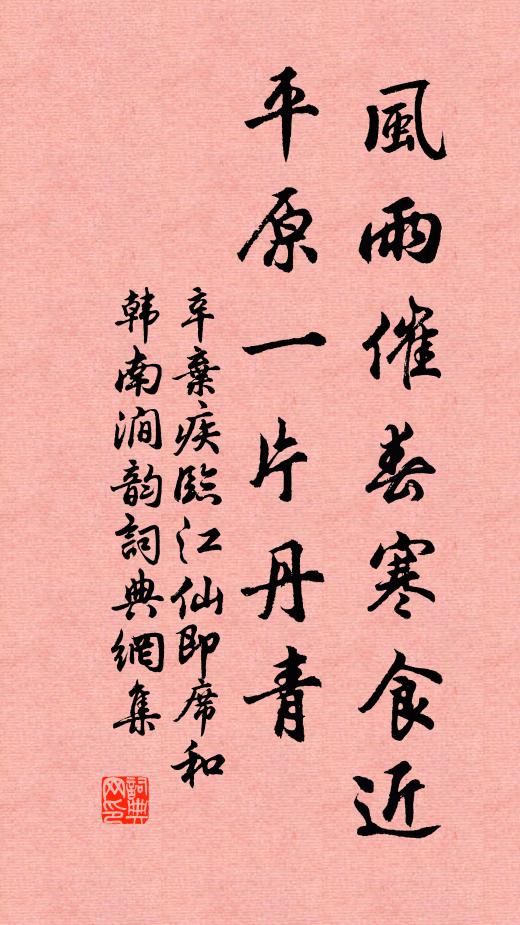 風雨催春寒食近
平原一片丹青
辛棄疾臨江仙即席和
韩南澗韵詞典網集
詞典
网印